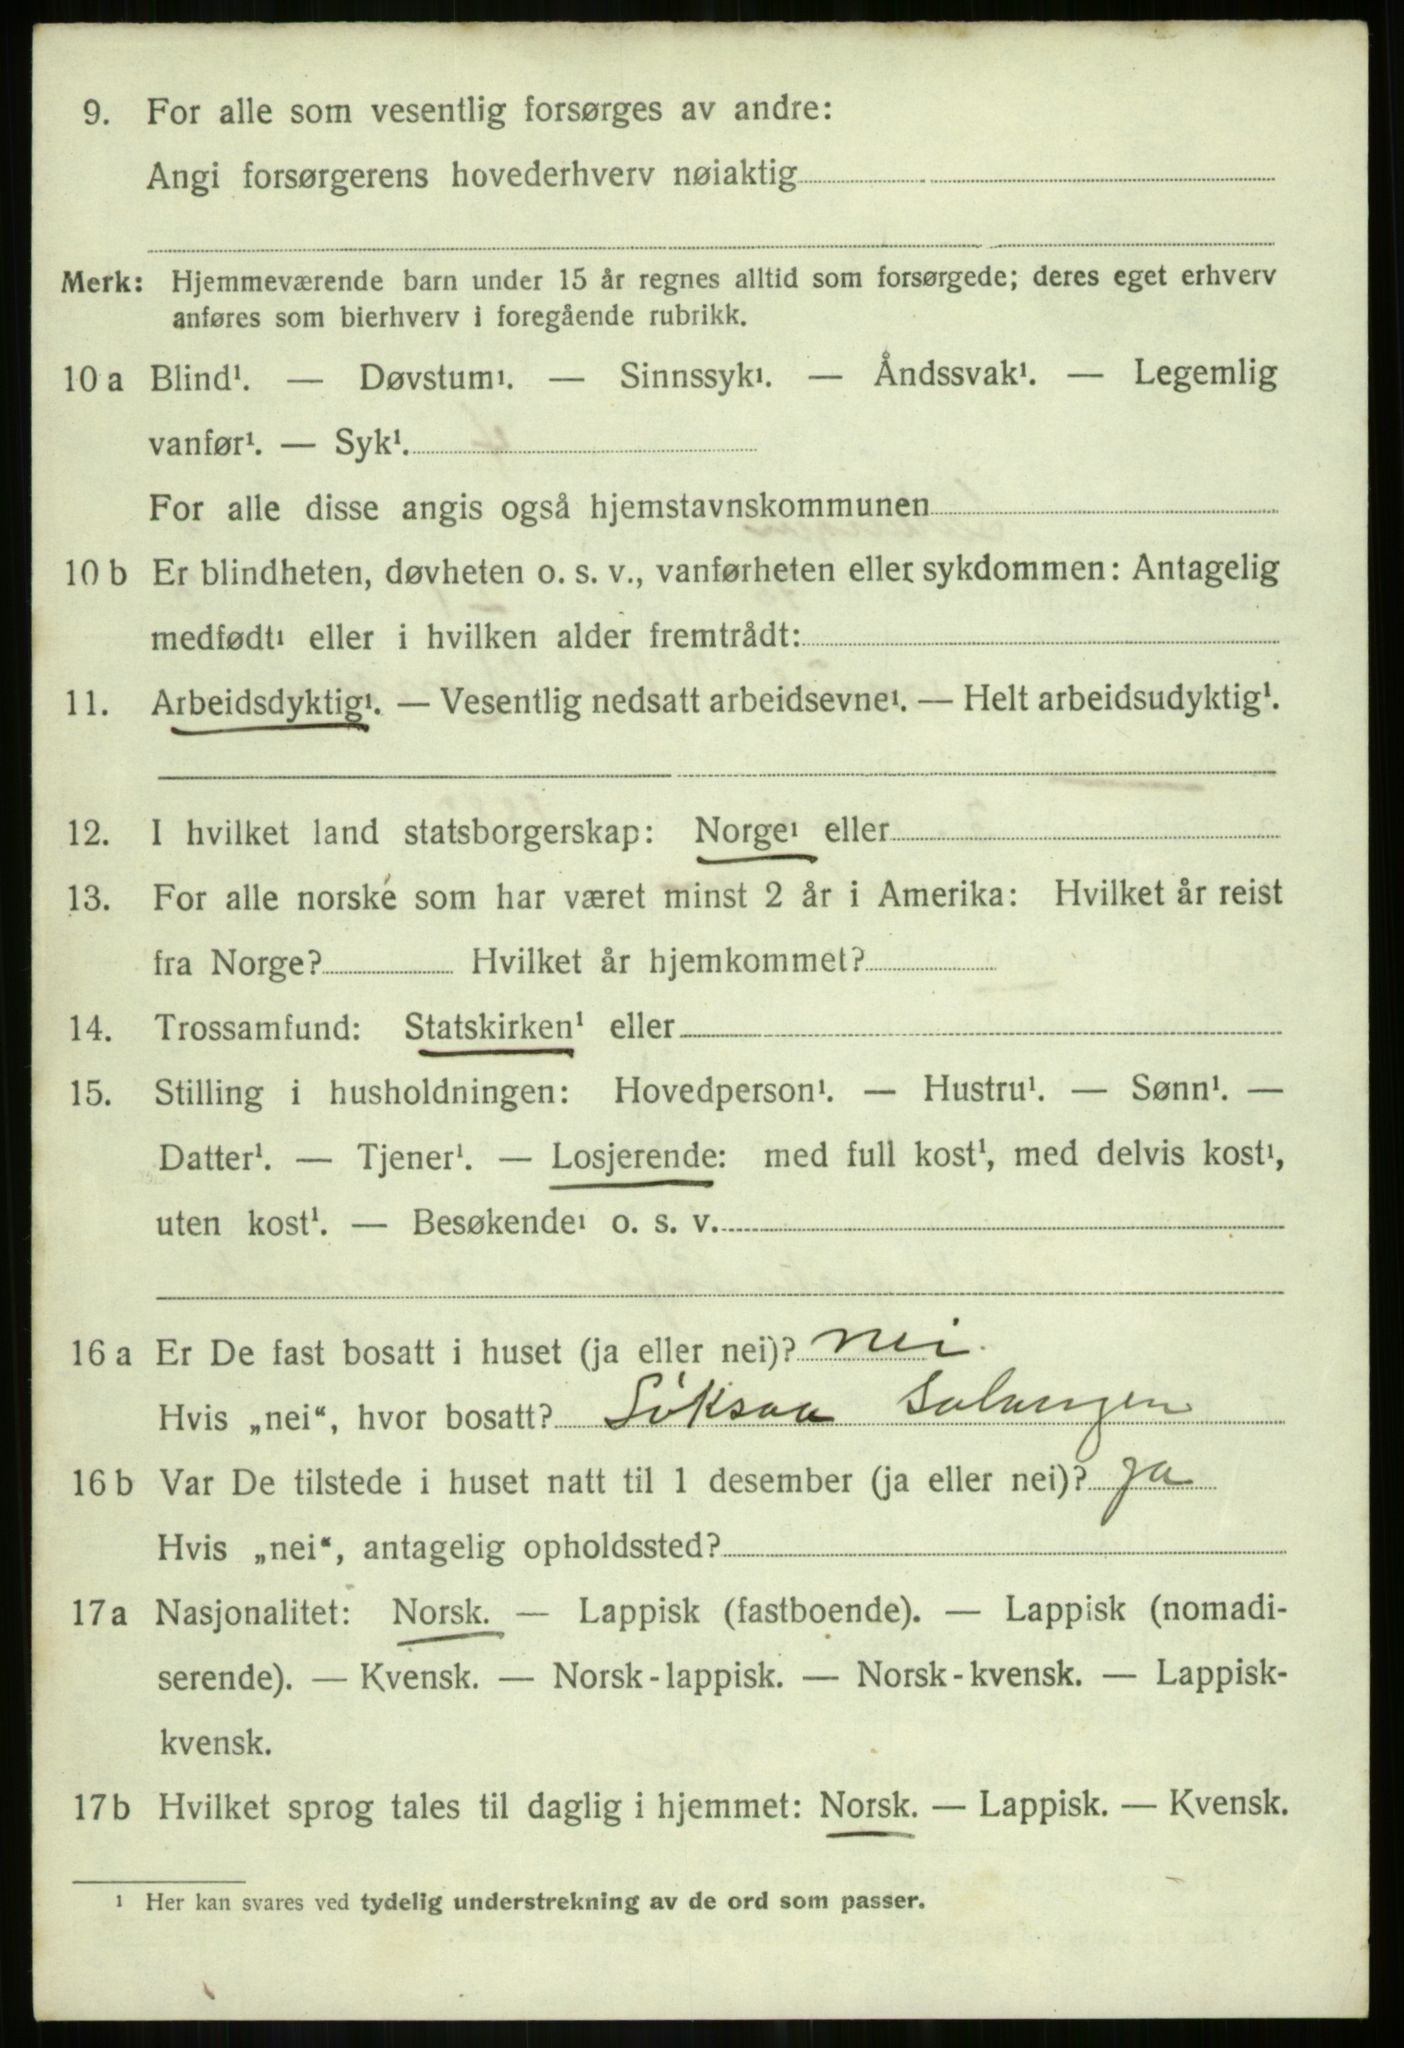 9. For alle som vesentlig forsørges av andre:
Angi forsørgerens hovederhverv nøiaktig
Merk: Hjemmeværende barn under 15 år regnes alltid som forsørgede; deres eget erhverv
anføres som bierhverv i foregående rubrikk.
10 a Blind¹. — Døvstum¹. — Sinnssyk¹. — Åndssvak¹. — Legemlig
vanfør¹. — Syk¹.
For alle disse angis også hjemstavnskommunen
10 b Er blindheten, døvheten o. s. v., vanførheten eller sykdommen: Antagelig
medfødt¹ eller i hvilken alder fremtrådt:
11. Arbeidsdyktig¹. — Vesentlig nedsatt arbeidsevne¹. — Helt arbeidsudyktig¹.
12. I hvilket land statsborgerskap: Norge¹ eller
13. For alle norske som har været minst 2 år i Amerika: Hvilket år reist
fra Norge? Hvilket år hjemkommet?
14. Trossamfund: Statskirken¹ eller
15. Stilling i husholdningen: Hovedperson¹. — Hustru¹. — Sønn¹. —
Datter¹. — Tjener¹. — Losjerende: med full kost¹, med delvis kost¹,
uten kost¹. — Besøkende¹ o. s. v.
16 a Er De fast bosatt i huset (ja eller nei)? nei.
Hvis „nei“, hvor bosatt? Löksaa Salangen
16 b Var De tilstede i huset natt til 1 desember (ja eller nei)? ja
Hvis „nei“, antagelig opholdssted?
17 a Nasjonalitet: Norsk. — Lappisk (fastboende). — Lappisk (nomadi-
serende). — Kvensk. — Norsk-lappisk. — Norsk-kvensk. — Lappisk-
kvensk.
17 b Hvilket sprog tales til daglig i hjemmet: Norsk. — Lappisk. — Kvensk.
¹ Her kan svares ved tydelig understrekning av de ord som passer.